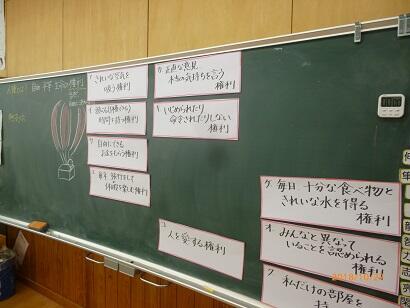 きれいな空気を
吸う権利
正直な意見
本当の気持ちを言う
権利
遊び
時間を持つ権利
いじめられたり
命令されたりしない
権利
自由にできる
おこづかいをもらう権利
毎年 旅行をして
休暇を楽しむ権利
人を愛する権利
毎日 十分な食べ物と
きれいな水を得る
権利
オ みんなと異なって
いることを認められる
権利
私だけの部屋を
持
2018/10/24